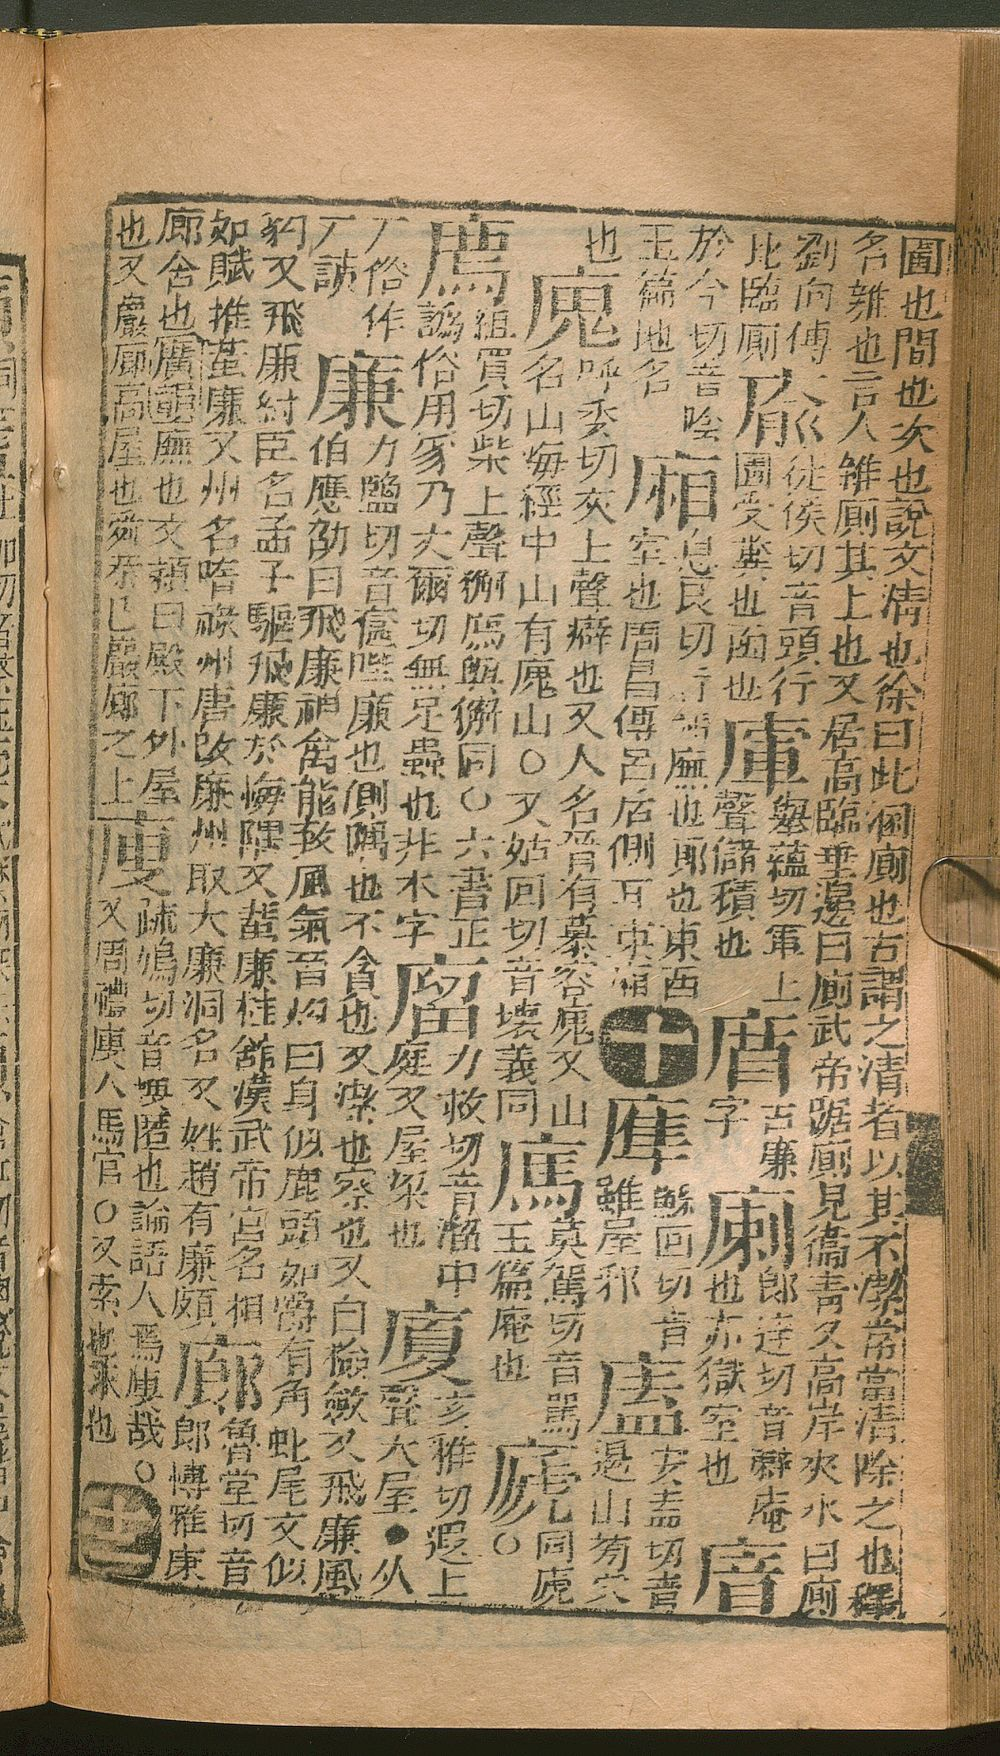 圊也間也次也說文清也徐曰此溷廁也古謂之清者以其不潔常當清除之也釋
名雜也言人雜廁其上也又居高臨垂邊曰廁武帝踞廁見衞青又高岸夾水曰廁
劉向傳
比臨廁
㢏
徒侯切音頭行
圊受糞也函也
㡓
舉蘊切軍上
聲儲積也
㾗
古廉
字
㾐
郎達切音辢庵
也亦獄室也
㢂
於今切音陰
玉篇地名
廂
息良切 廡也郎也東西
室也周昌傳呂后側耳東廂
十
䧹
蘇回切音
雖屋邪
㕎
安盍切音
山旁穴
也
廆
呼委切灰上聲癖也又人名晉有慕容廆又山
名山海經中山有廆山○又姑回切音壞義同
㾺
莫駕切音罵
玉篇庵也
㡯
同䖍
○
廌
組買切柴上聲獬廌與獬同○六書正
譌俗用豸乃丈爾切無足蟲也非本字
廇
力救切音溜中
庭又屋梁也
廈
亥雅切遐上
聲大屋●从
厂俗作
厂誤
廉
力鹽切音匳陛廉也側隅也不貪也又潔也察也又白儉斂又飛廉風
伯應劭曰飛廉神禽能致風氣晉灼曰身似鹿頭如爵有角蛇尾文似
豹又飛廉紂臣名孟子驅飛廉於海隅又蜚廉桂舘漢武帝宮名相
如賦推蜚廉又州名唐祿州唐改廉州取大廉洞名又姓趙有廉頗
廊
魯堂切音
郎博雅康
廊舍也廣韻廡也文穎曰殿下外屋
也又巖廊高屋也 巖廊之上
廋
疏鳩切音 匿也論語人焉廋哉○
又周禮廋人馬官○又索也求也
十一